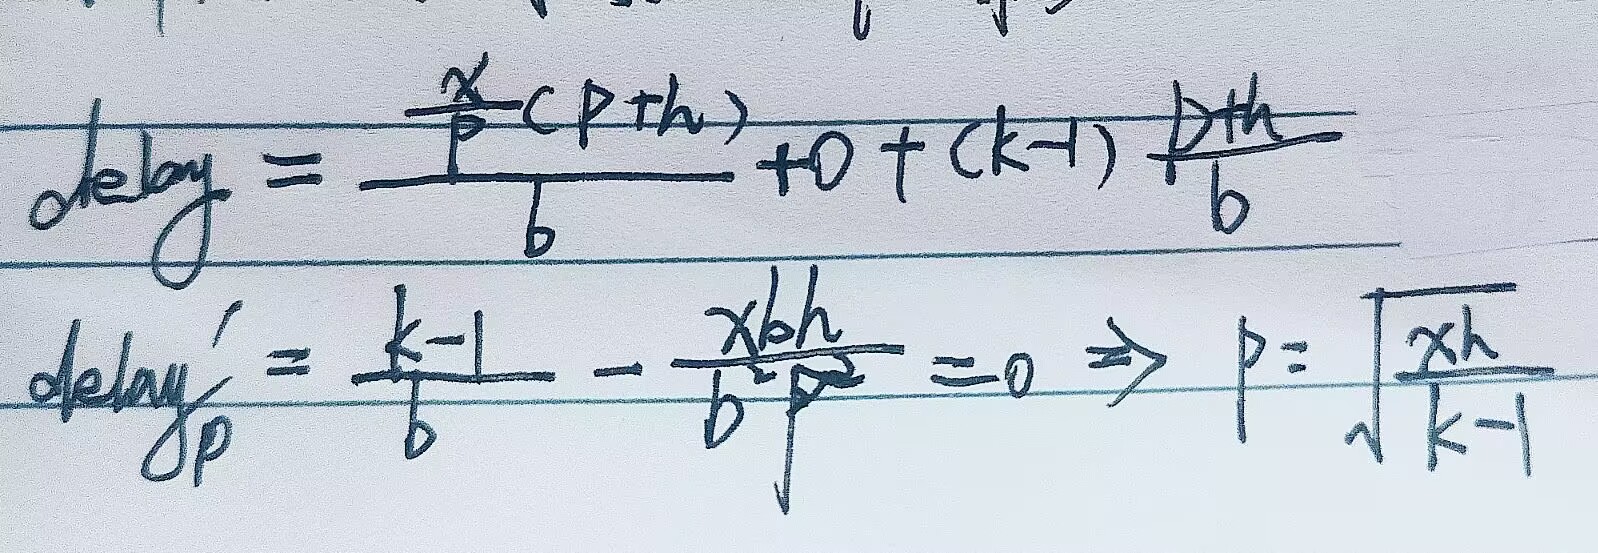 delay = \frac{\frac{x}{p}(p+h)}{b} + 0 + (k-1) \frac{p+h}{b}
delay'_p = \frac{k-1}{b} - \frac{xbh}{b^2 p^2} = 0 ⇒ p = \sqrt{\frac{xh}{k-1}}